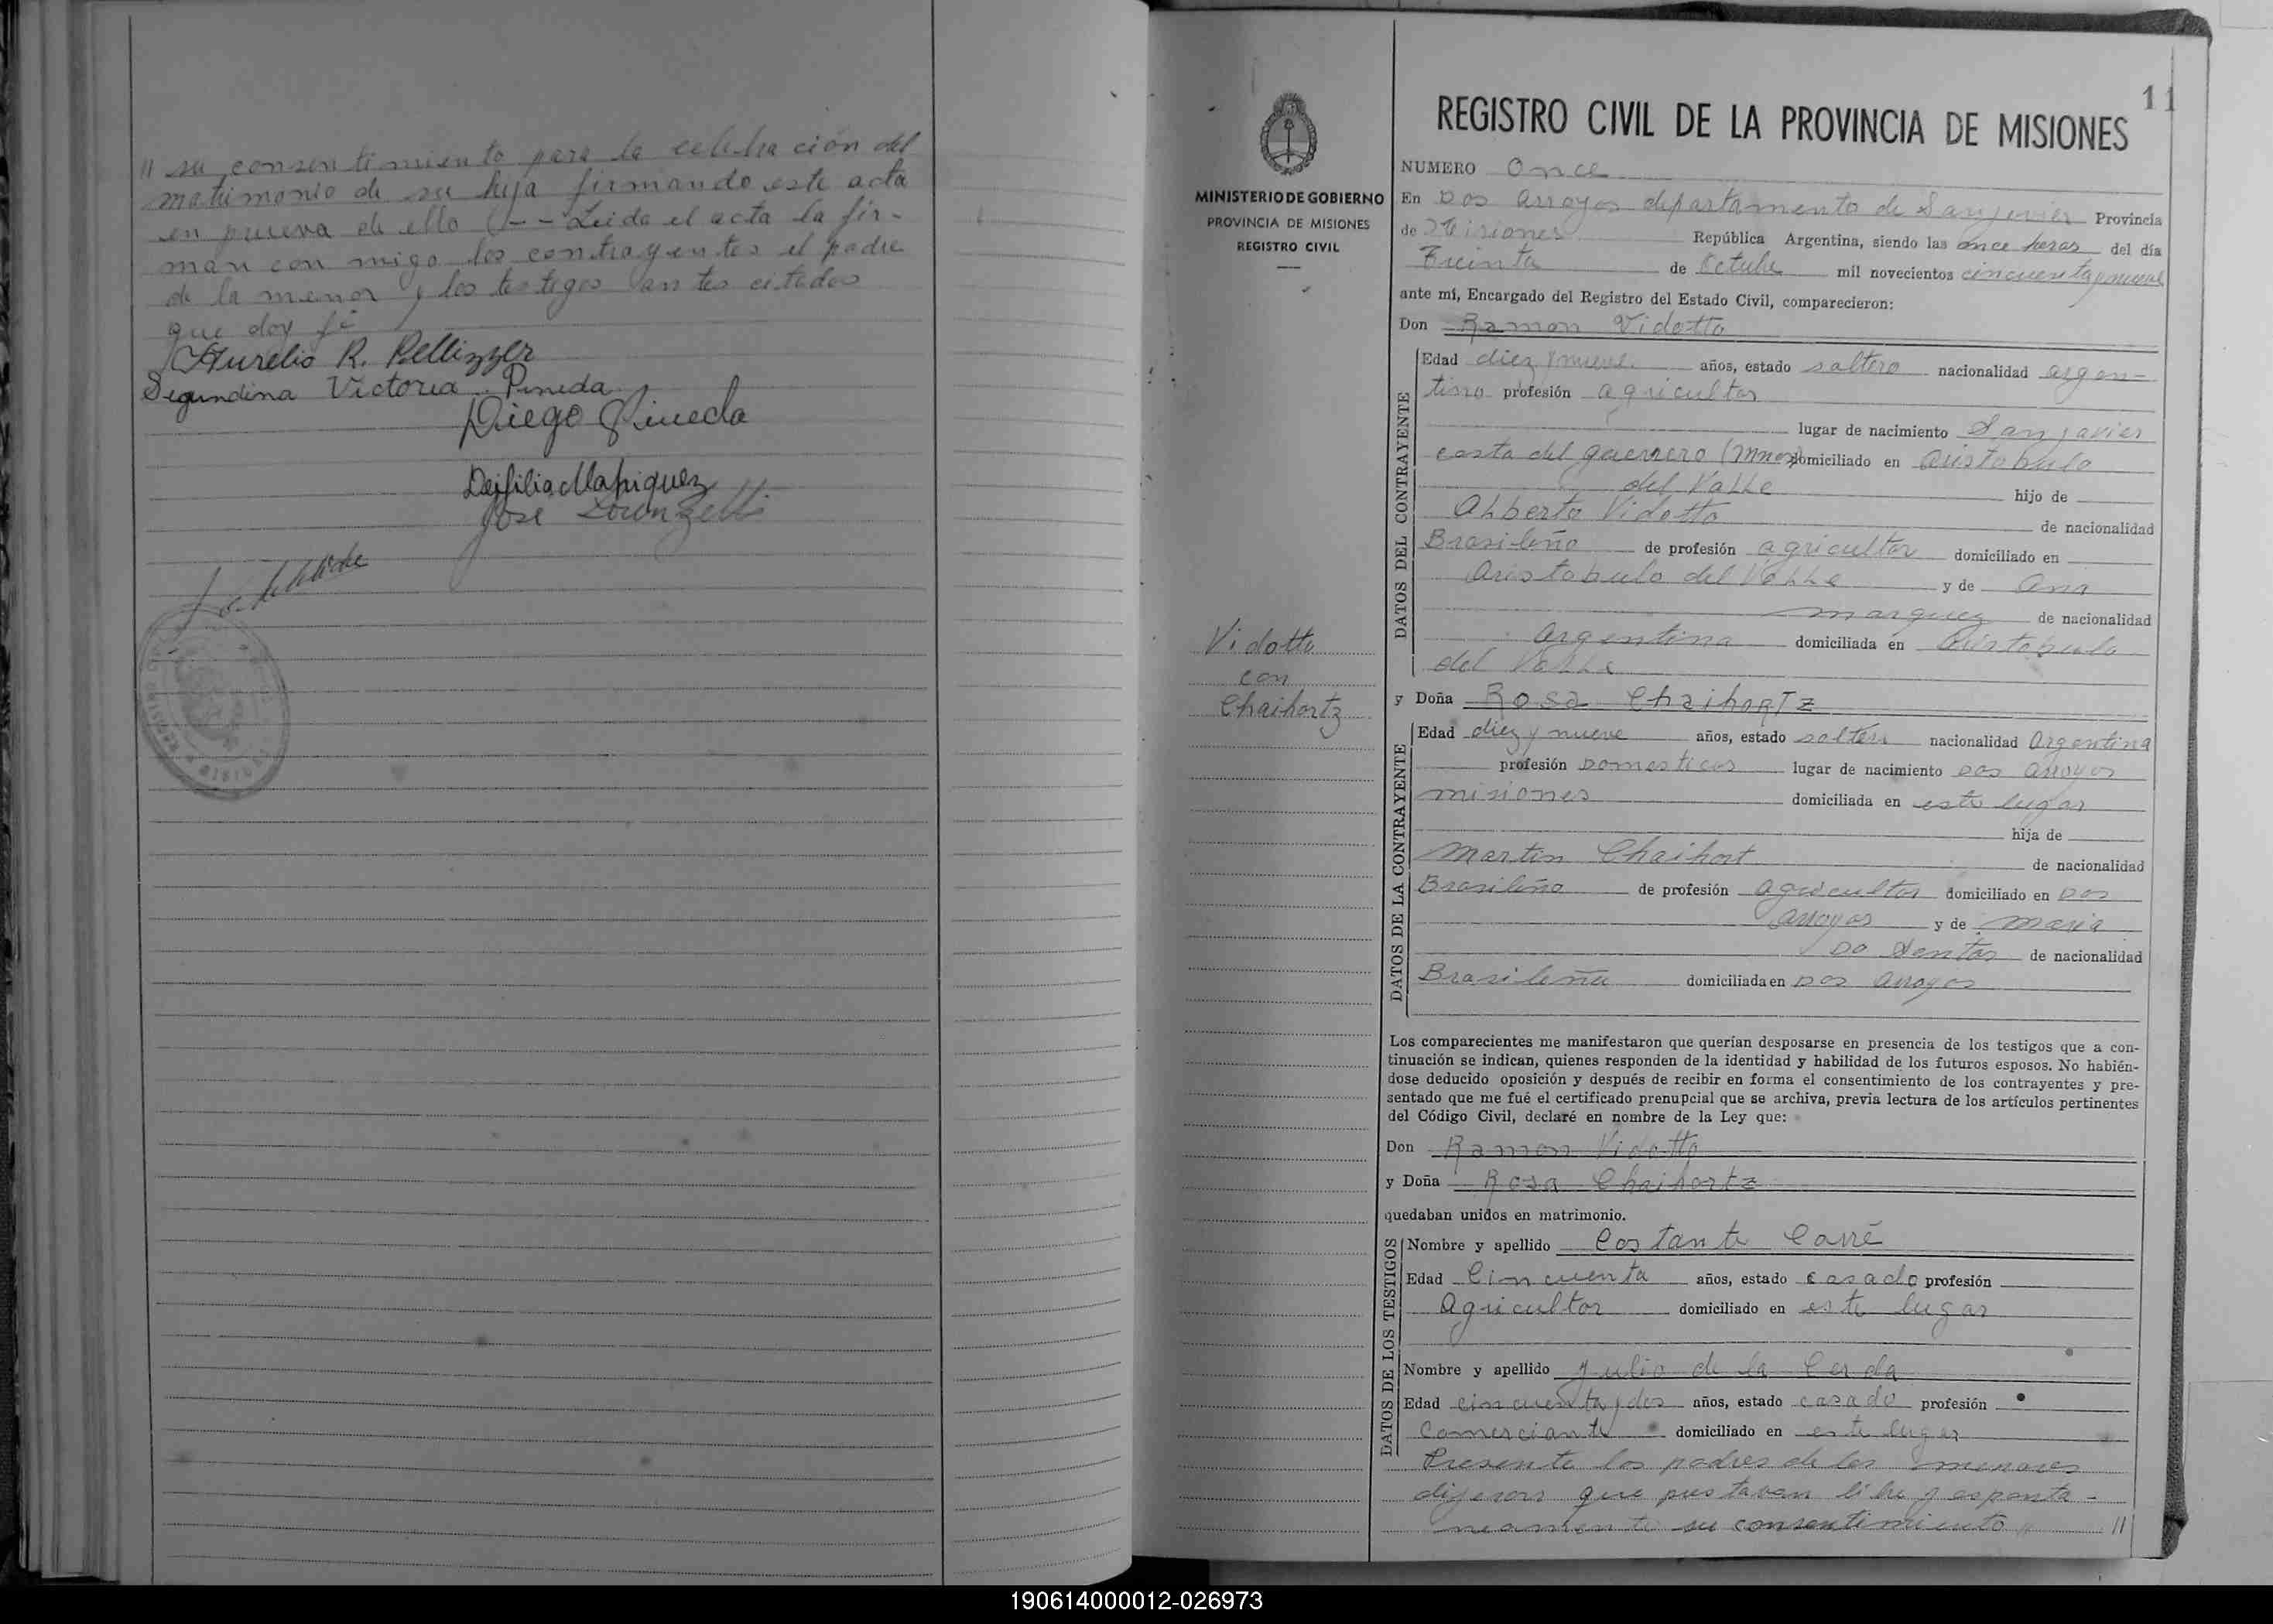 // su consentimiento para la celebración del
matrimonio de su hija firmando este acta
en prueva de ello (-- Leida el acta la fir-
man con migo los contrayentes el padre
de la menor y los testigos antes citados
que doy fé
Aurelio R. Pellizzer
Segundina Victoria Pineda
Diego Pineda
Deifilia Mahiquez
José Lorenzetti
11
REGISTRO CIVIL DE LA PROVINCIA DE MISIONES
MINISTERIO DE GOBIERNO
PROVINCIA DE MISIONES
REGISTRO CIVIL
Vidotto
con
Chaihortz
NUMERO Once
En Dos Arroyos departamento de San Javier Provincia
de Misiones República Argentina, siendo las once horas del día
Treinta de Octubre mil novecientos cincuenta y nueve
ante mí, Encargado del Registro del Estado Civil, comparecieron:
Don Ramon Vidotto
DATOS DEL CONTRAYENTE
Edad diez y nueve años, estado soltero nacionalidad argen-
tino profesión agricultor
lugar de nacimiento San Javier
costa del guerrero (Mnes) domiciliado en Aristobulo
del Valle hijo de
Alberto Vidotto de nacionalidad
Brasileño de profesión agricultor domiciliado en
Aristobulo del Valle y de Ana
Marquez de nacionalidad
Argentina domiciliada en Aristobulo
del Valle
y Doña Rosa Chaihortz
DATOS DE LA CONTRAYENTE
Edad diez y nueve años, estado soltera nacionalidad Argentina
profesión Domesticos lugar de nacimiento Dos Arroyos
misiones domiciliada en este lugar
hija de
Martin Chaihort de nacionalidad
Brasileño de profesión agricultor domiciliado en Dos
arroyos y de maria
Do Santos de nacionalidad
Brasileña domiciliada en Dos Arroyos
Los comparecientes me manifestaron que querían desposarse en presencia de los testigos que a con-
tinuación se indican, quienes responden de la identidad y habilidad de los futuros esposos. No habién-
dose deducido oposición y después de recibir en forma el consentimiento de los contrayentes y pre-
sentado que me fué el certificado prenupcial que se archiva, previa lectura de los artículos pertinentes
del Código Civil, declaré en nombre de la Ley que:
Don Ramon Vidotto
y Doña Rosa Chaihortz
quedaban unidos en matrimonio.
DATOS DE LOS TESTIGOS
Nombre y apellido Costante Carré
Edad Cincuenta años, estado casado profesión
Agricultor domiciliado en este lugar
Nombre y apellido Julio de la Cerda
Edad cincuenta y dos años, estado casado profesión
Comerciante domiciliado en este lugar
Presente los padres de los menores
dijeron que prestavan libre y esponta-
neamente su consentimiento //
190614000012-026973